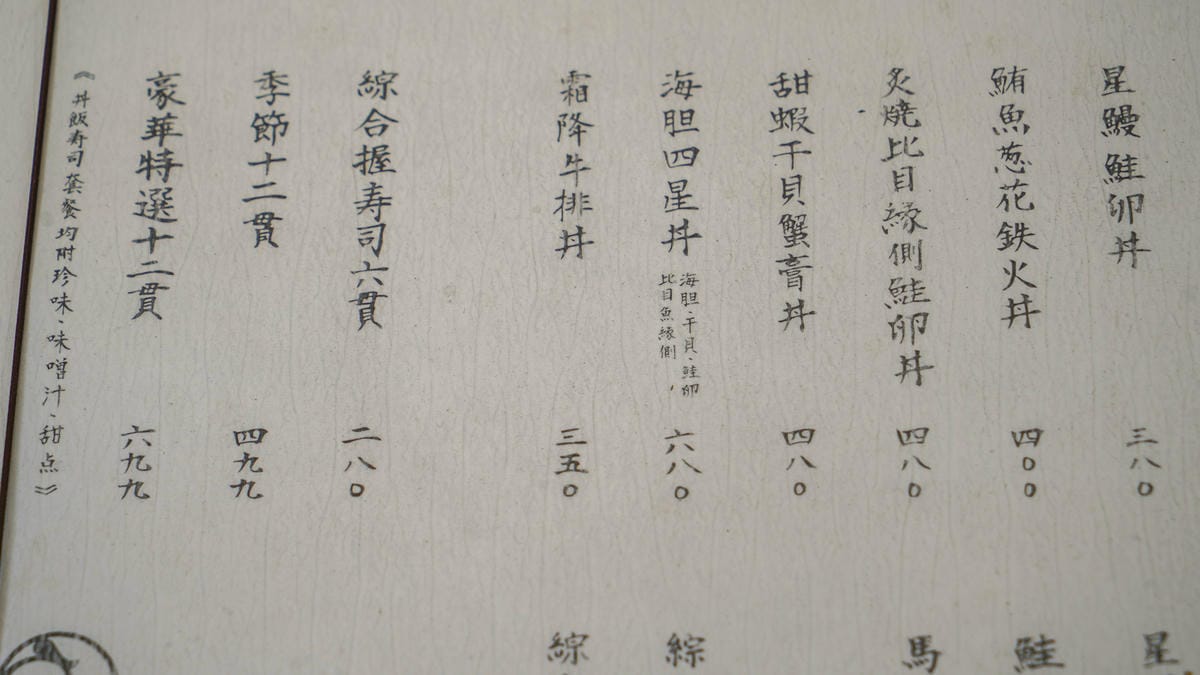 星鰻鮭卵丼
三八〇
鮪魚葱花鉄火丼
四〇〇
炙燒比目緣側鮭卵丼
四八〇
甜蝦干貝蟹膏丼
四八〇
海胆四星丼
海胆、干貝、鮭卵
比目魚緣側,
六八〇
霜降牛排丼
三五〇
綜合握寿司六貫
二八〇
季節十二貫
四九九
豪華特選十二貫
六九九
《丼飯寿司套餐均附珍味、味噌汁、甜点》
星
鮭
馬
綜
綜